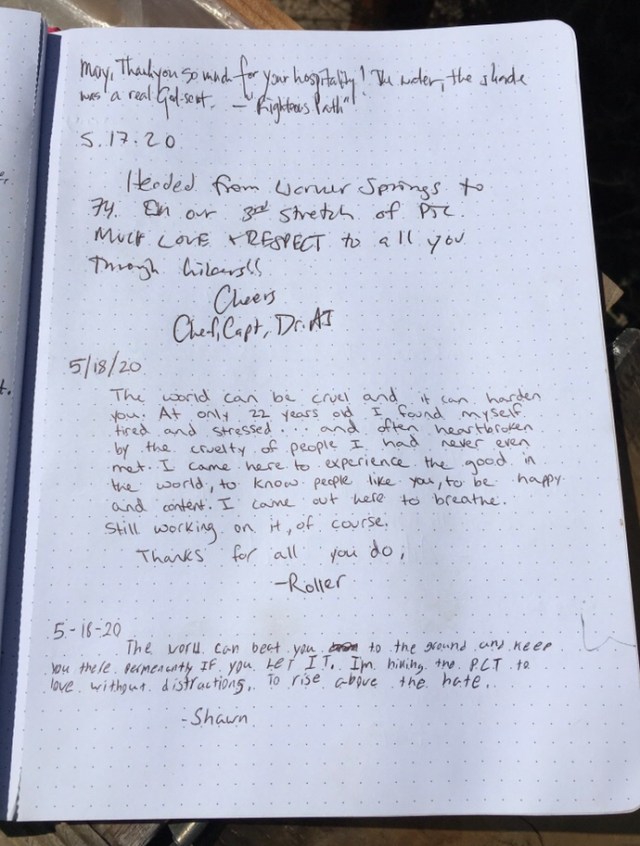 Mary, Thank you so much for your hospitality! The water, the shade
was a real God-sent. - "Righteous Path"
5.17.20
Headed from Warner Springs to
74. On our 3rd stretch of PTC.
MUCH LOVE + RESPECT to all you
Through hikers!!
Cheers
Chef, Capt, Dr. AJ
5/18/20
The world can be cruel and it can harden
you. At only 22 years old I found myself
tired and stressed... and often heartbroken
by the cruelty of people I had never even
met. I came here to experience the good in
the world, to know people like you, to be happy
and content. I came out here to breathe.
Still working on it, of course.
Thanks for all you do,
-Roller
5-18-20
The world can beat you to the ground and keep
you there permenantly IF you LET IT. Im hiking the PCT to
love without distractions, To rise above the hate.
-Shawn